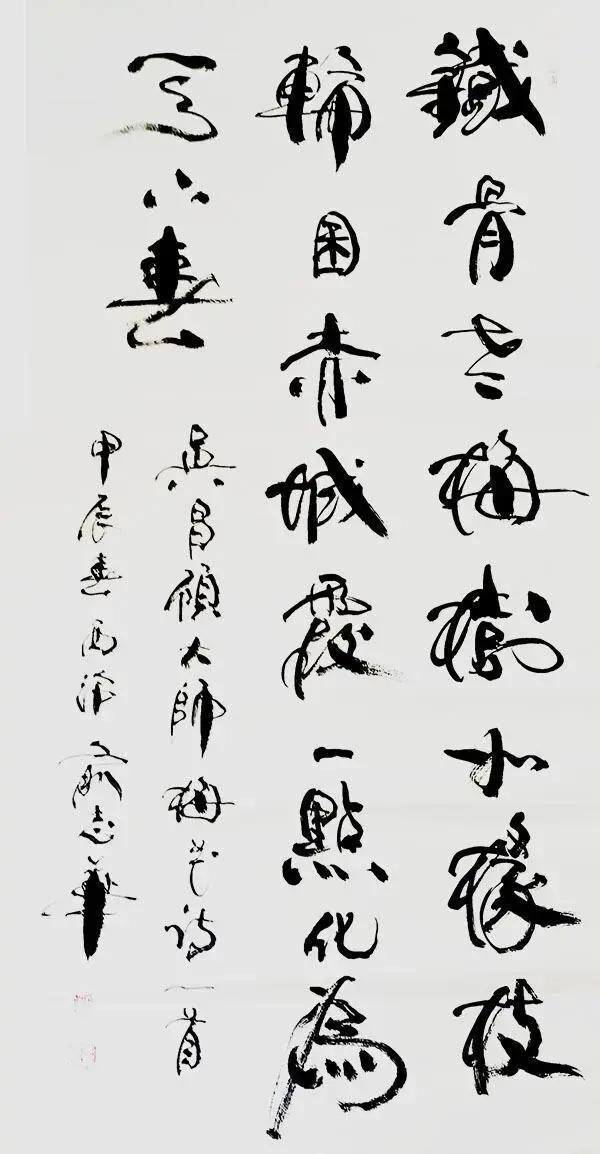 鐵骨老梅樹如椽枝
輪囷赤城霞一點化為
天下春
吳昌碩大師梅花詩一首
甲辰春西 俞志華